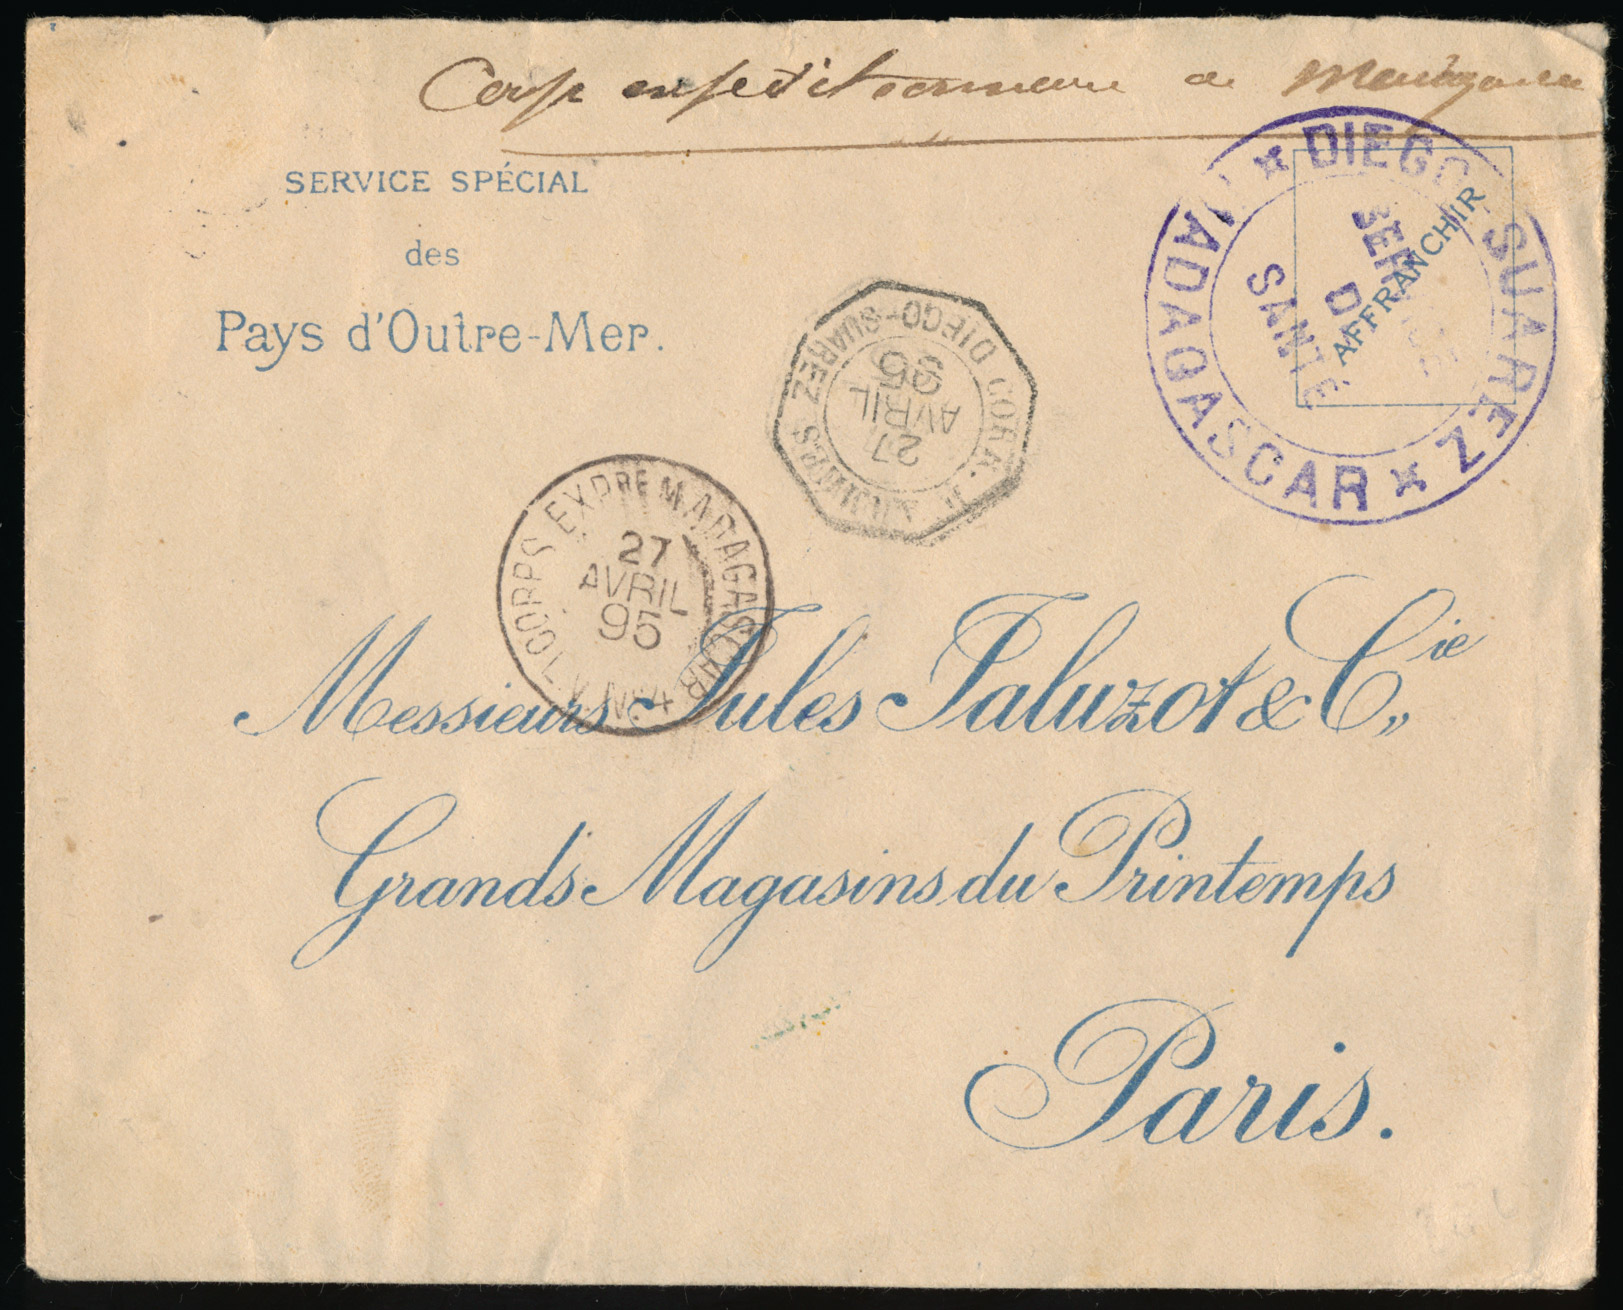 Corps expeditionnaire de Madagascar
SERVICE SPÉCIAL
des
Pays d'Outre-Mer.
DIEGO-SUAREZ MADAGASCAR
SERVICE
DE
SANTÉ
AFFRANCHIR
CORR. D'ARMÉES DIEGO-SUAREZ
27
AVRIL
95
CORPS EXPRE MADAGASCAR
27
AVRIL
95
Messieurs Jules Jaluzot & Cie
Grands Magasins du Printemps
Paris.